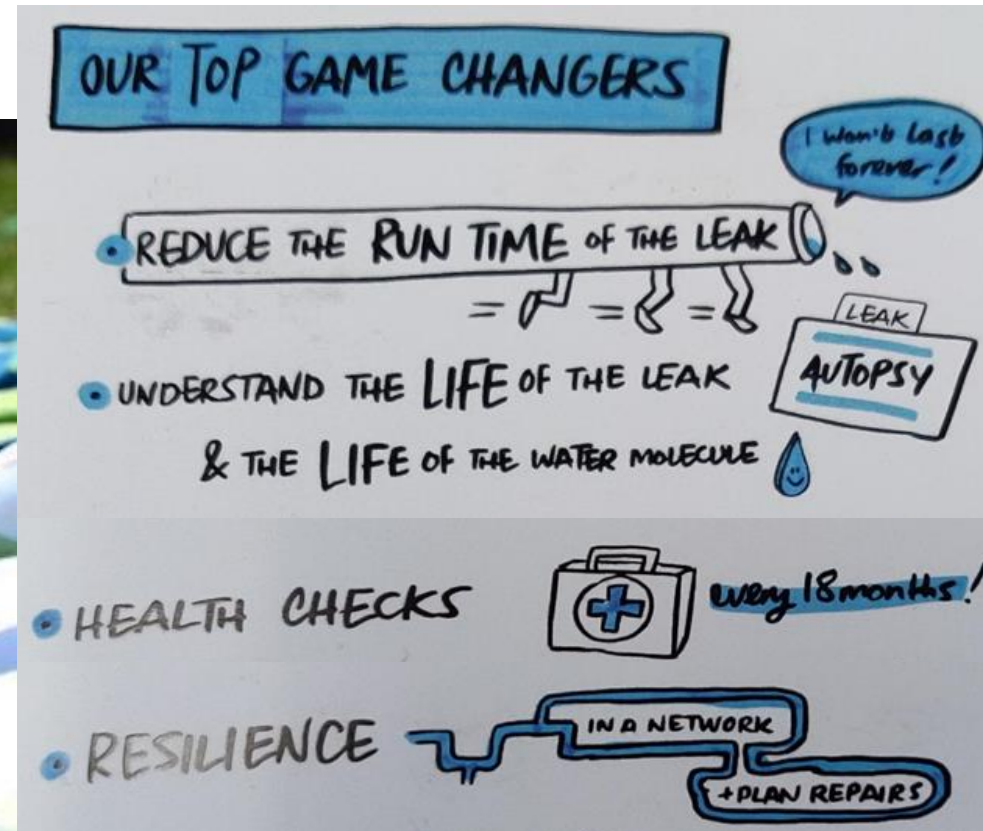 OUR TOP GAME CHANGERS
I won't last
forever!
REDUCE THE RUN TIME OF THE LEAK
LEAK
AUTOPSY
UNDERSTAND THE LIFE OF THE LEAK
& THE LIFE OF THE WATER MOLECULE
HEALTH CHECKS
every 18 months!
RESILIENCE
IN A NETWORK
+PLAN REPAIRS